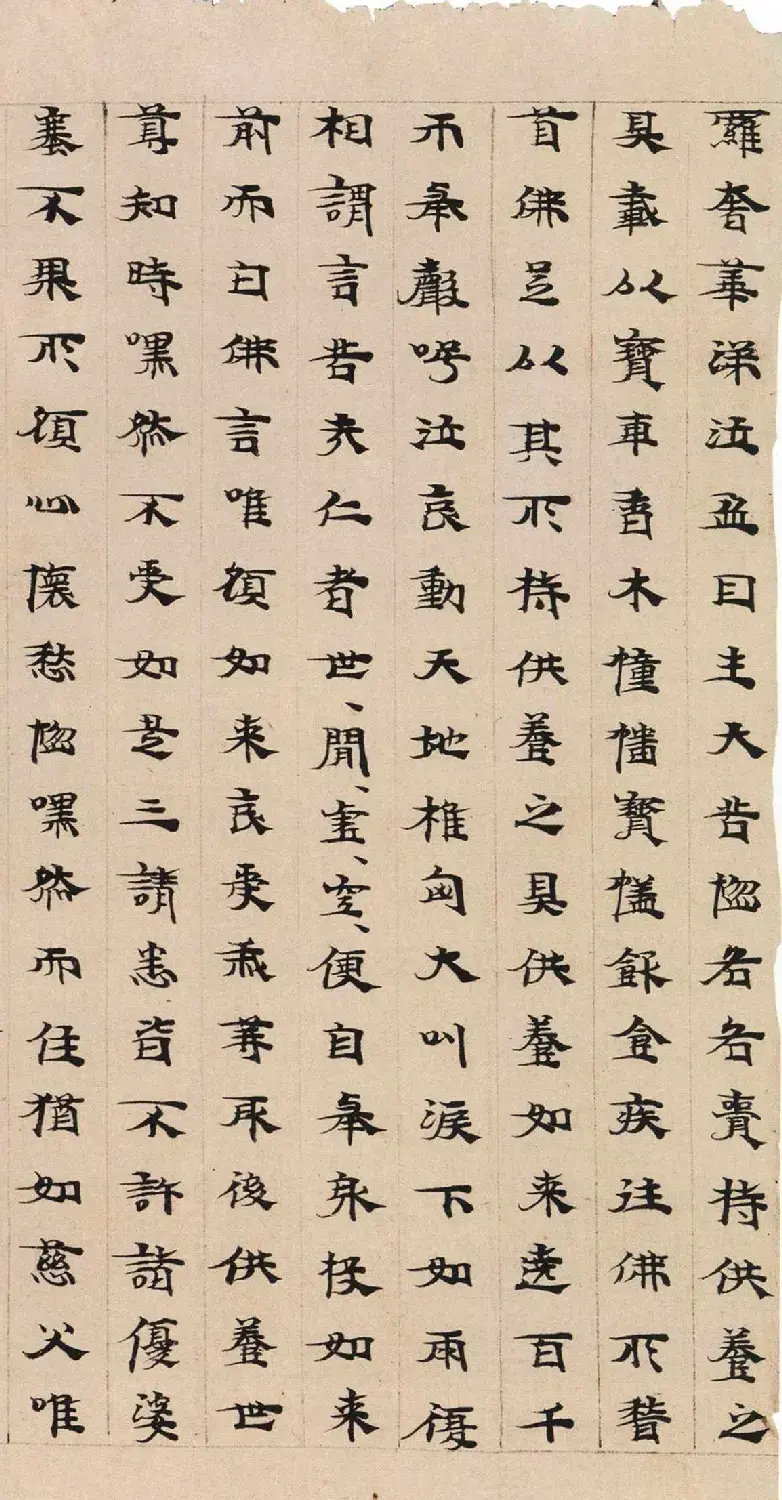 羅奢華涕泣盈目生大苦惱各各賫持供養之
具載以寶車香木幢幡寶蓋飲食疾往佛所稽
首佛足以其所持供養之具供養如来遶百千
帀舉聲呺泣哀動天地椎匈大叫淚下如雨復
相謂言苦哉仁者世間虛空便自舉身投如来
前而白佛言唯願如来哀受我等冣後供養世
尊知時嘿然不受如是三請悉皆不許諸優婆
塞不果所願心懷愁惱嘿然而住猶如慈父唯